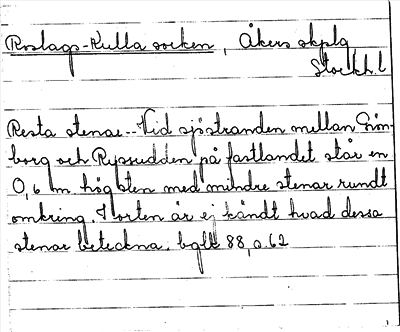 Roslags-Kulla socken, Åkers skplg
Stockh. l
Resta stenar.- Vid sjöstranden mellan Grön-
borg och Ryssudden på fastlandet står en
0,6 m hög sten med mindre stenar rundt
omkring. I orten är ej kändt hvad dessa
stenar beteckna. bglt 88, a. 62